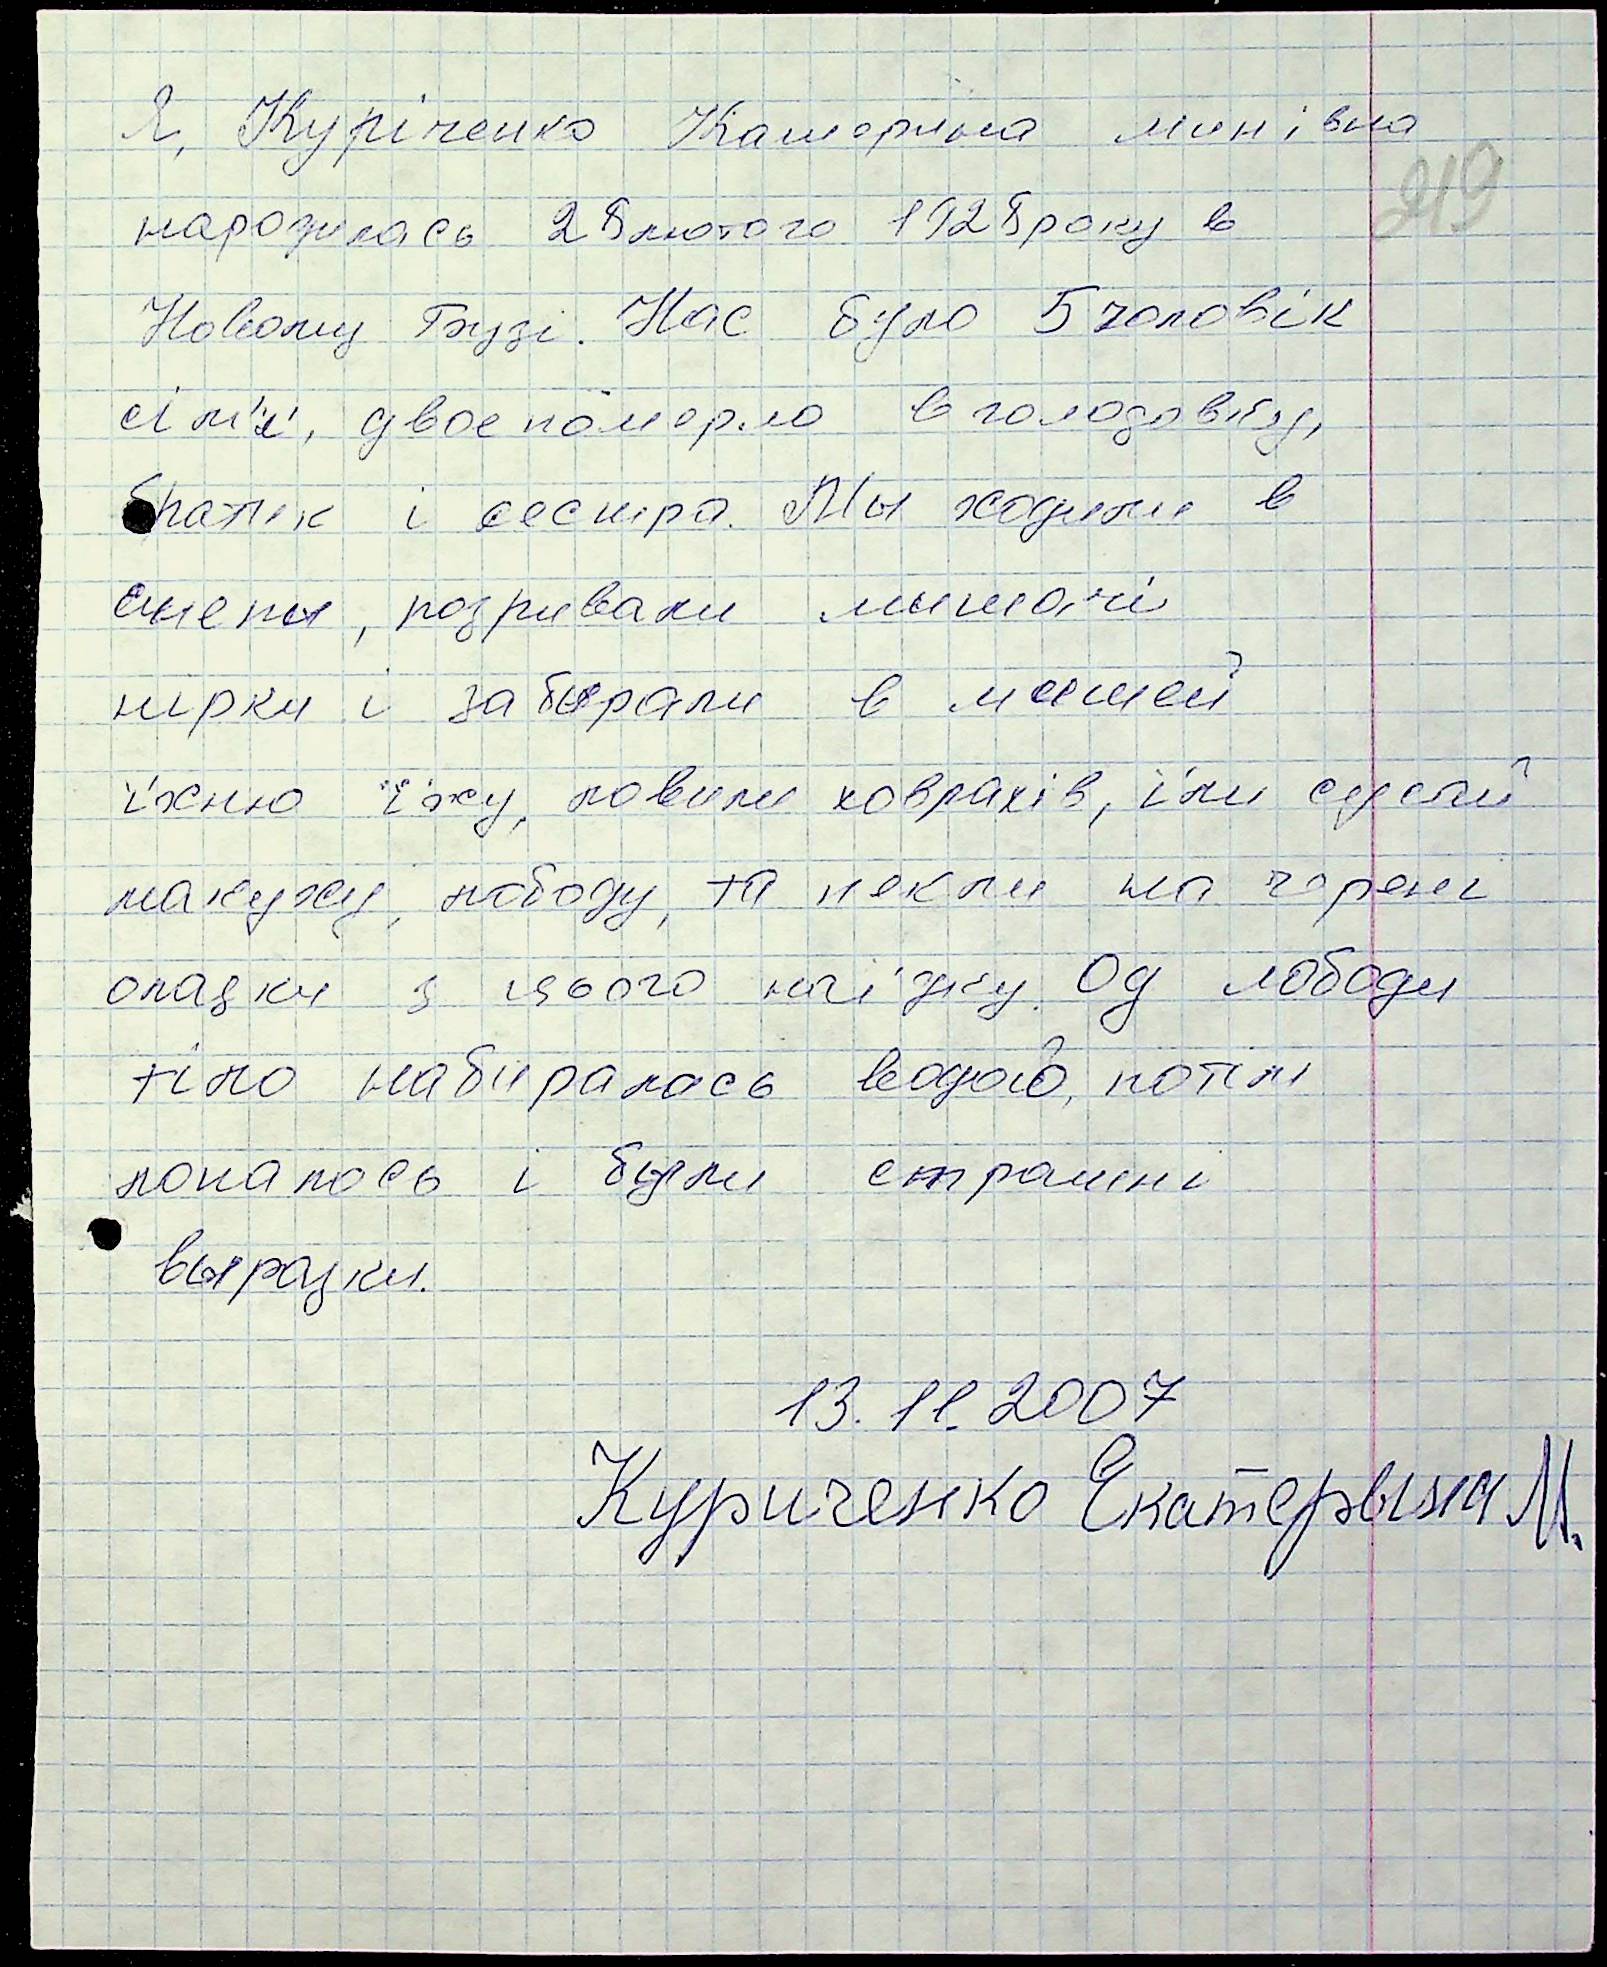 Я, Куріченко Катерина минівна
249
народилась 28 лютого 1928 року в
Новому Бузі. Нас було 5 чоловік
сім'ї, двое померло в голодовку,
братик і сестра. Мы ходили в
степы, розривали мишачі
нірки і забырали в мишей
їхню їжу, ловили ховрахів, їли сухий
макуху, лободу, та пекли на черені
оладки з цього насіння. Од лободи
тіло набиралось водою, потім
лопалось і были страшні
выразки.
13.11.2007
Куриченко Екатерына М.